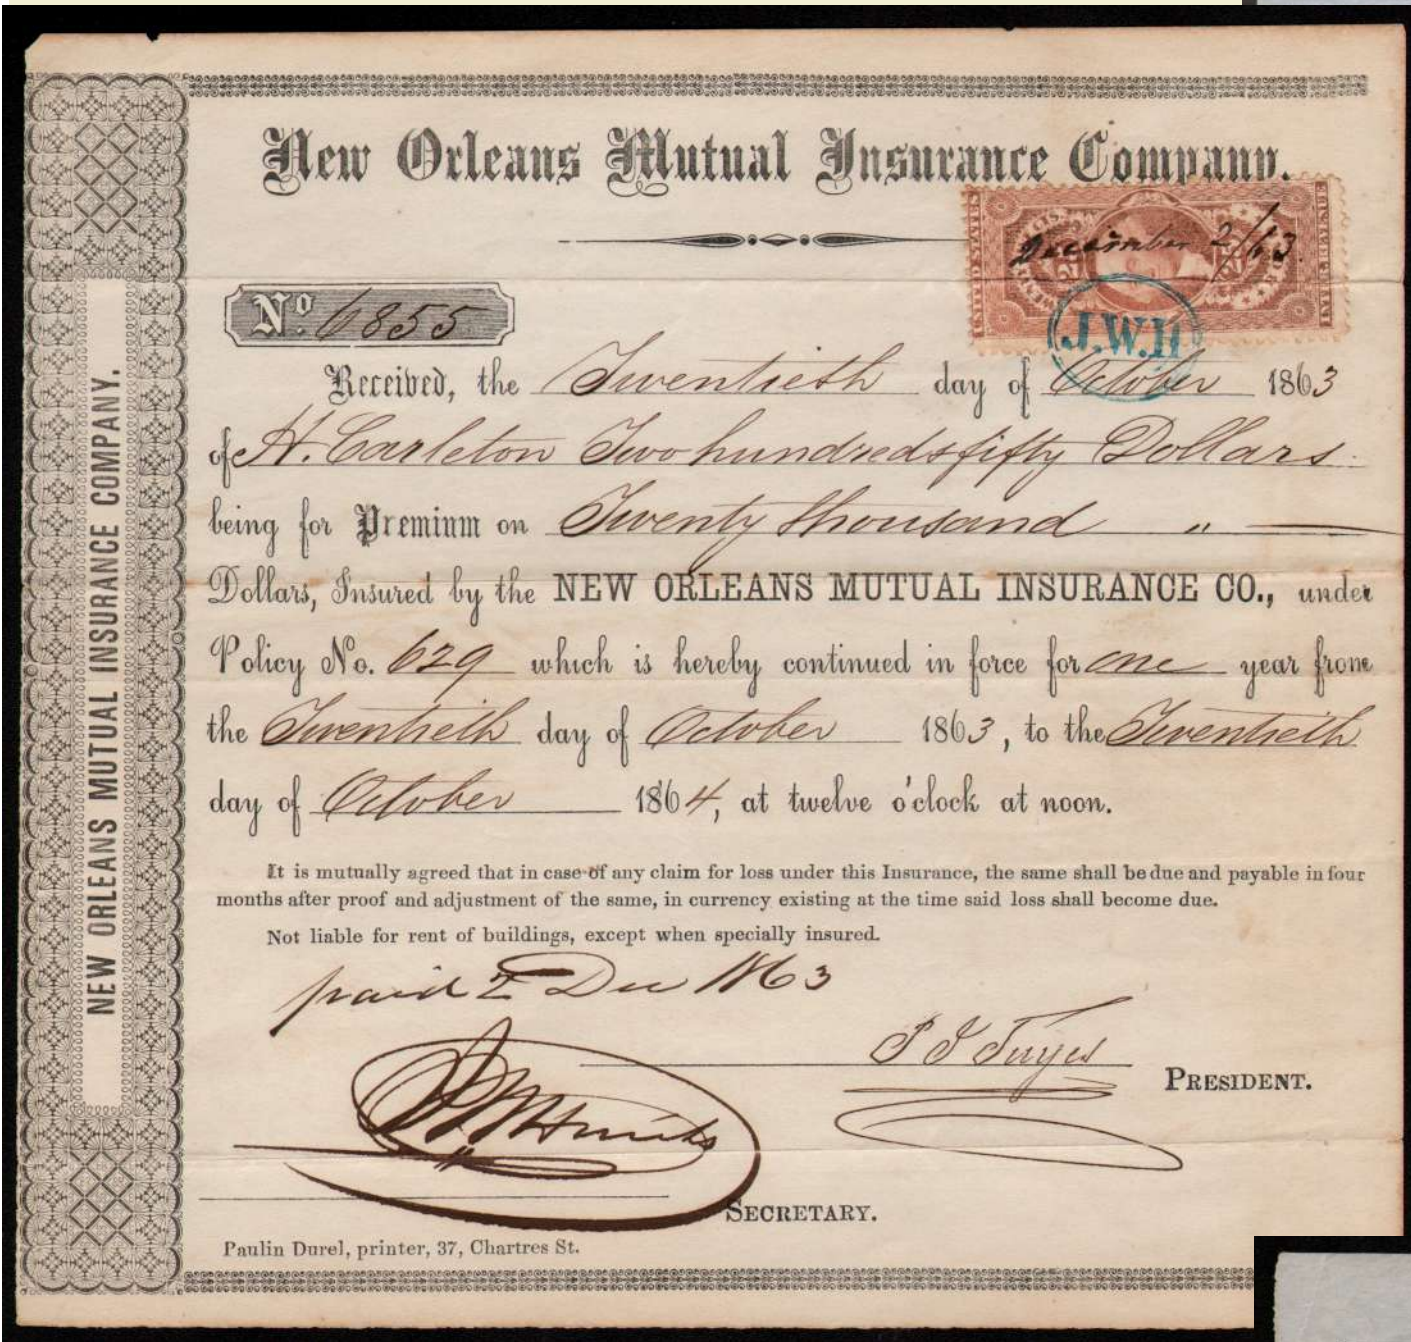 New Orleans Mutual Insurance Company.
UNITED STATES
December 2/63
25
25
J.W.H
No. 6855
Received, the Twentieth day of October 1863
of H. Carleton Two hundreds fifty Dollars
being for Premium on Twenty thousand "
Dollars, Insured by the NEW ORLEANS MUTUAL INSURANCE CO., under
Policy No. 629 which is hereby continued in force for one year from
the Twentieth day of October 1863, to the Twentieth
day of October 1864, at twelve o'clock at noon.
It is mutually agreed that in case of any claim for loss under this Insurance, the same shall be due and payable in four
months after proof and adjustment of the same, in currency existing at the time said loss shall become due.
Not liable for rent of buildings, except when specially insured.
paid 2 Dec 1863
PRESIDENT.
SECRETARY.
Paulin Durel, printer, 37, Chartres St.
NEW ORLEANS MUTUAL INSURANCE COMPANY.